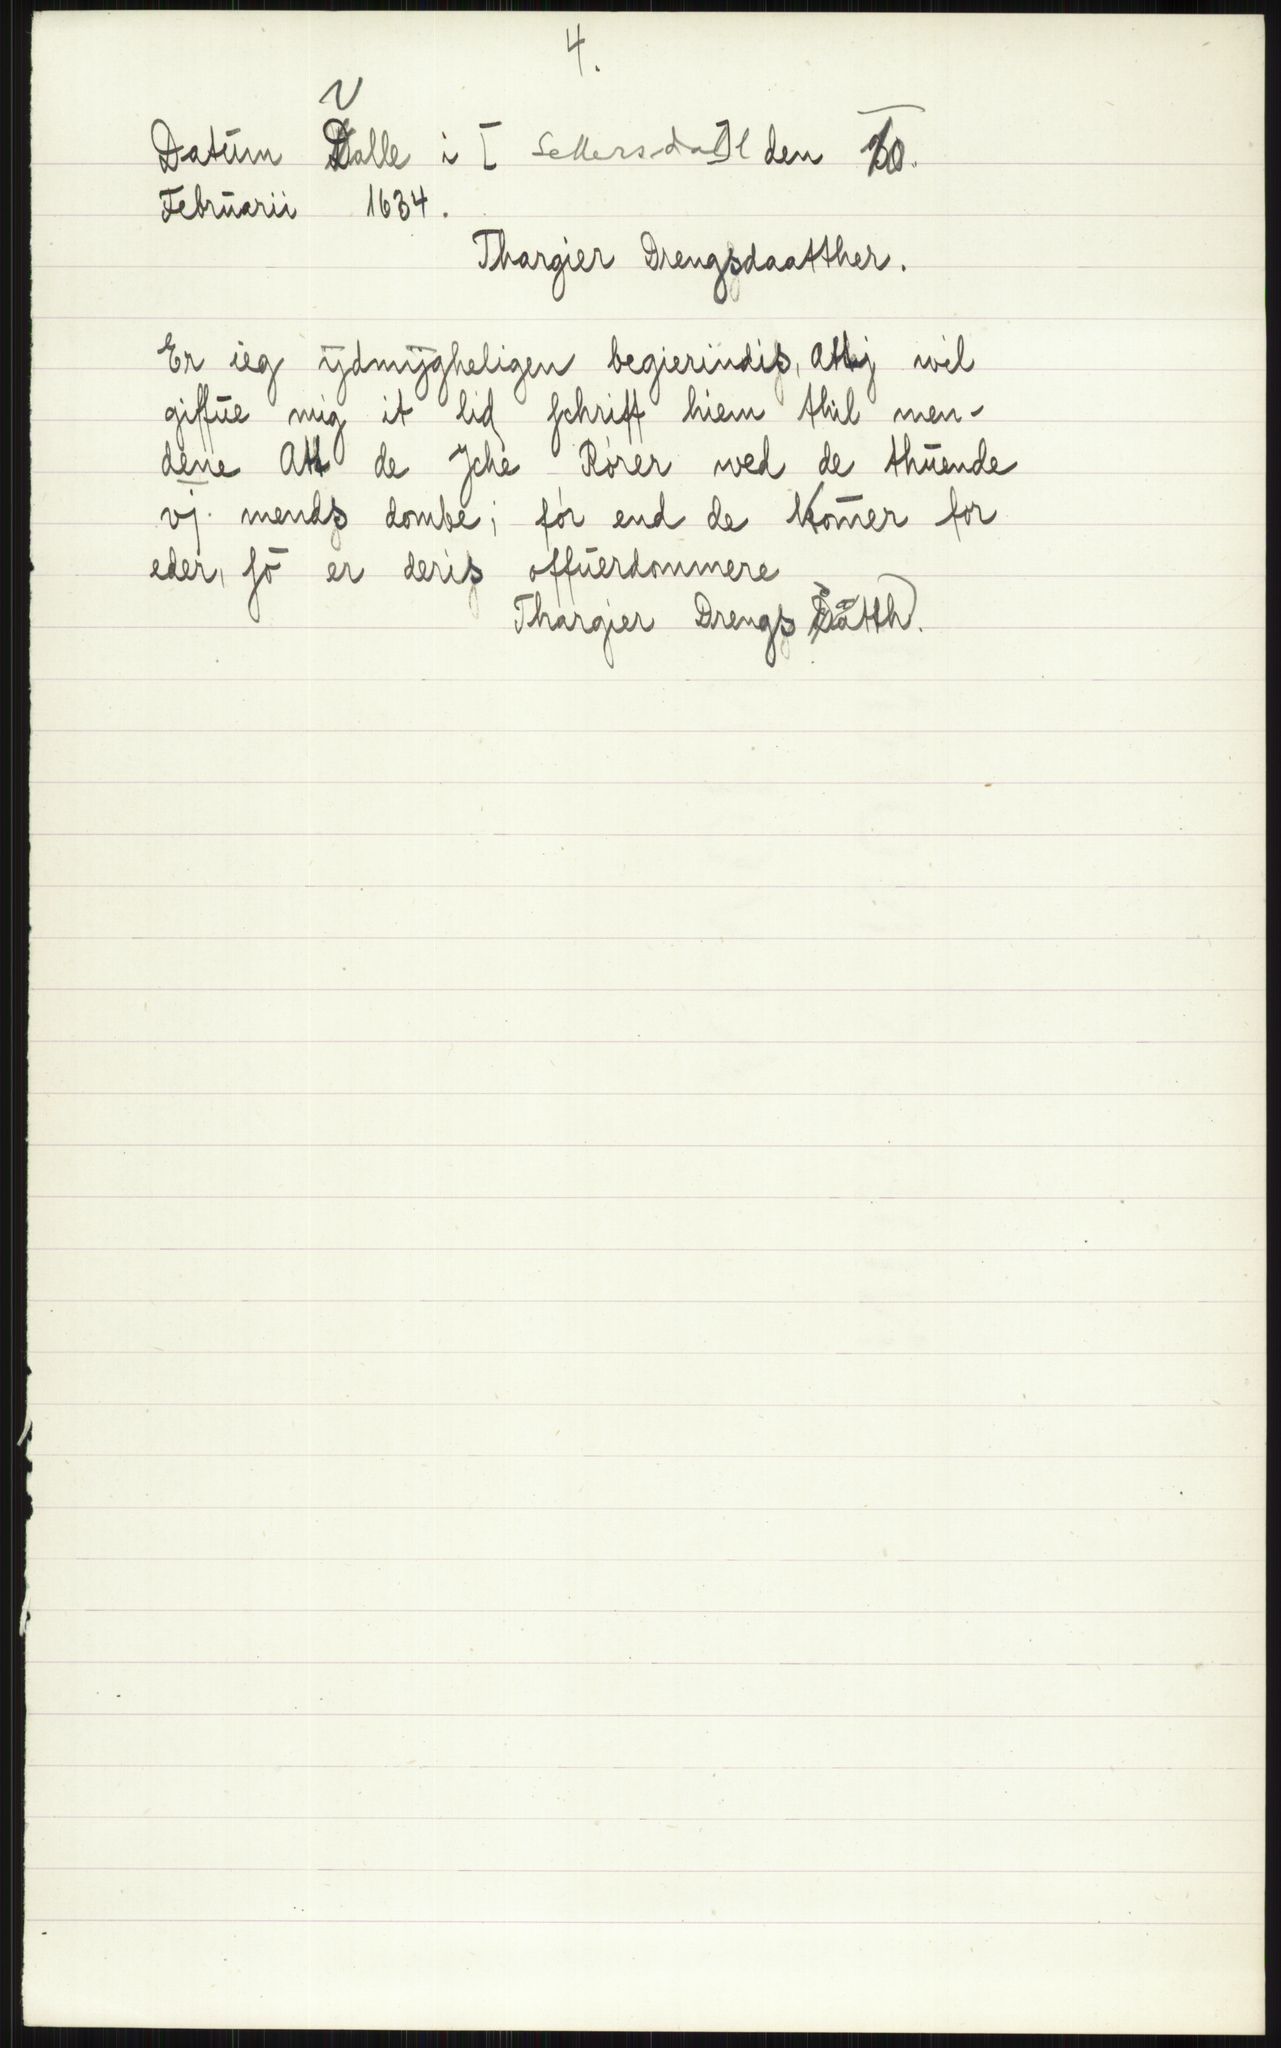 4.
Datum Valle i [Settersda]l den 10.
Februarii 1634.
Thargier Drengsdaatther.
Er ieg ÿdmÿgheligen begierindis, Attj wil
giffue mig it lid schrifft hiem thil men-
dene Att de Jche Rører wed de thuende
vj. mends dombe; før end de Komer for
eder, so er deris offuerdommere
Thargier Drengs Datth.